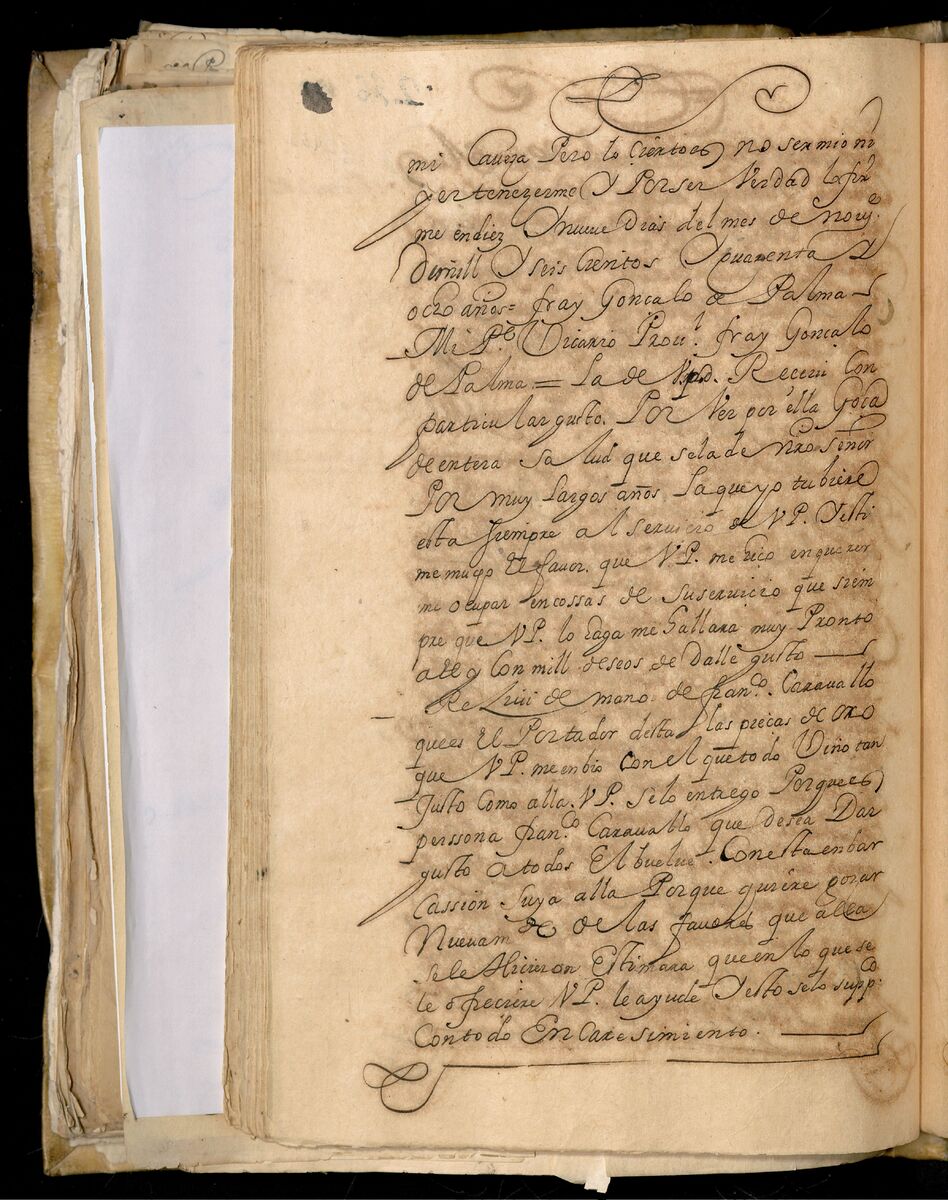 mi Caveza Pero lo Ciertoes no ser mio ni
pertenezerme Y Por ser Verdad lo fir
me en diez Y nueve Dias del mes de novi.e
de mill Y seis Cientos Y quarenta Y
ocho años = fray Gonçalo de Palma
Mi Pe. Vicario Prou.l fray Gonçalo
de Palma = La de V.p.d. Receui Con
particular gusto. Por Ver por ella Goça
de entera Salud que sela de nro Señor
Por muy Largos años La que yo tubiere
esta siempre al seruicio de V P. Y esti
me mucho El fauor. que V P. me hiço en querer
me ocupar en cossas de suseruicio que siem
pre que V P. lo haga me hallara muy Pronto
a ello Con mill deseos de dalle gusto
Reçiui de mano. de fran.co Carauallo
que es El Portador desta las pieças de oro
que V P. me enbio Con el que todo Vino tan
Justo Como alla. V P. se lo entrego Porque es
perssona fran.co Carauallo que desea Dar
gusto a todos El buelue. Con esta enbar
Cassion Suya alla Porque quiere goçar
Nuevam.te de las fauores que alla
se le Hicieron Estimara que en lo que se
le ofreciere V P. le ayude Y esto se lo supp.co
Con todo En Care simiento.